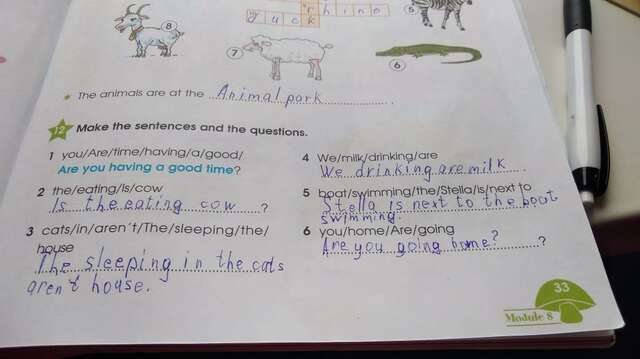 8
rhino
yuck
6
7
6
* The animals are at the Animal park.
12 Make the sentences and the questions.
1 you/Are/time/having/a/good/
Are you having a good time?
2 the/eating/Is/cow
Is the eating cow ?
3 cats/in/aren't/The/sleeping/the/
house
The sleeping in the cats
aren't house.
4 We/milk/drinking/are
We drinking are milk.
5 boat/swimming/the/Stella/is/next to
Stella is next to the boat
swimming.
6 you/home/Are/going
Are you going home? ?
33
Module 8